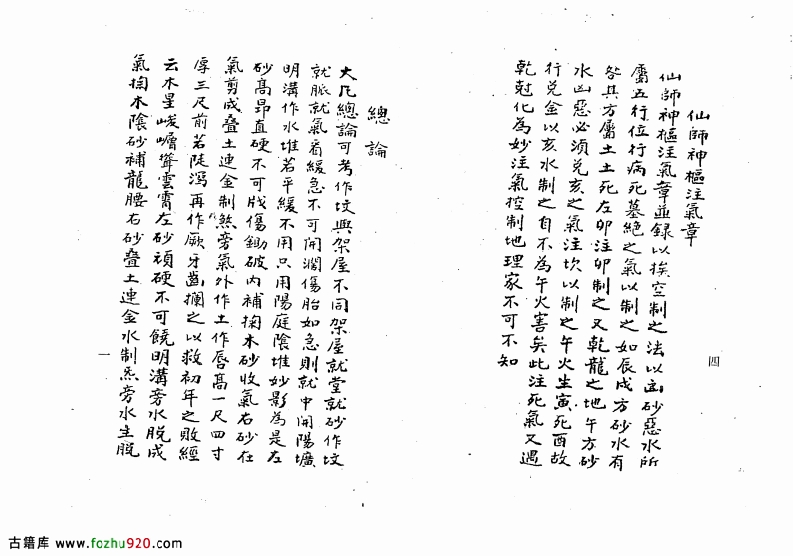 仙師神樞注氣章
仙師神樞注氣章並録以挨空制之法以凶砂惡水所
屬五行位行病死墓絶之氣以制之如辰戍方砂水有
咎其方屬土土死左卯注卯制之又乾龍之地午方砂
水凶惡必須兑亥之氣注坎以制之午火生寅死酉故
行兑金以亥水制之自不為午火害矣此注死氣又遇
乾尅化為妙注氣控制地理家不可不知
四
總論
大凡總論可考作坟與架屋不同架屋就堂就砂作坟
就脈就氣看緩急不可開濶傷胎如急則就中開陽壙
明溝作水堆若平緩不用只用陽庭陰堆妙影為是左
砂髙昂直硬不可戕傷鋤破内補掏木砂收氣右砂在
氣剪成叠土連金制煞旁氣外作土作唇髙一尺四寸
厚三尺前若陡瀉再作厥牙齒攔之以救初年之敗經
云木星峻嶒聳雲霄左砂頑硬不可饒明溝旁水脱成
氣掏木陰砂補龍腰右砂叠土連金水制炁旁水生脱
一
古籍库 www.fozhu920.com